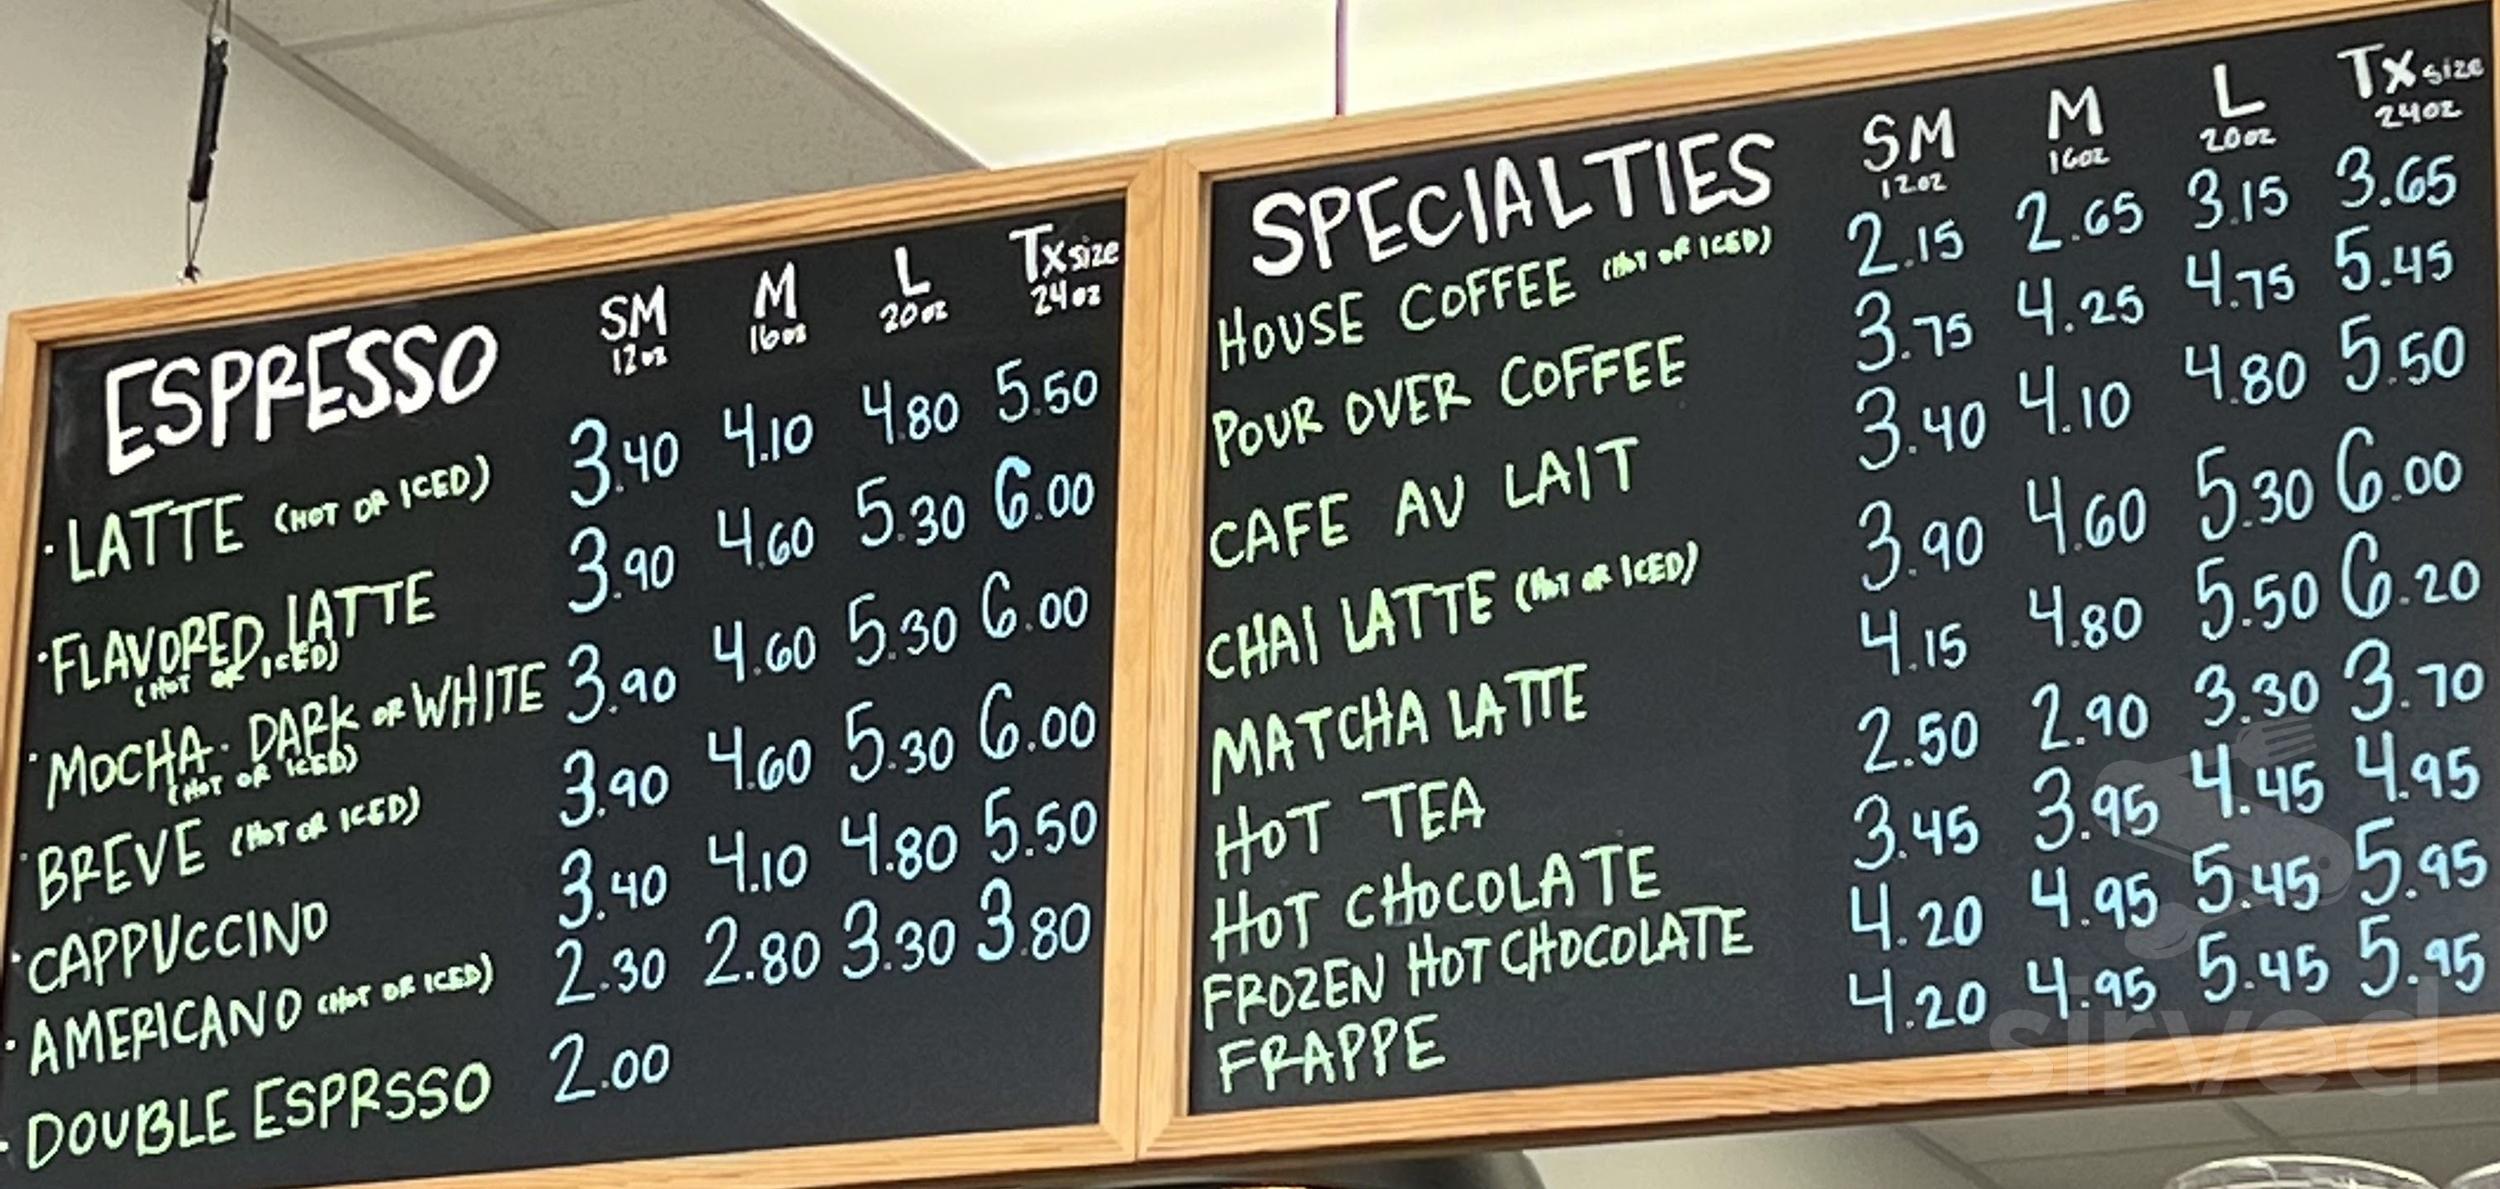 ESPRESSO SM M L TX size
12oz 16oz 20oz 24oz
·LATTE (HOT OR ICED) 3.40 4.10 4.80 5.50
·FLAVORED LATTE 3.90 4.60 5.30 6.00
(HOT OR ICED)
·MOCHA· DARK OR WHITE 3.90 4.60 5.30 6.00
(HOT OR ICED)
·BREVE (HOT OR ICED) 3.90 4.60 5.30 6.00
·CAPPUCCINO 3.40 4.10 4.80 5.50
·AMERICANO (HOT OR ICED) 2.30 2.80 3.30 3.80
·DOUBLE ESPRSSO 2.00
SPECIALTIES SM M L TX size
12oz 16oz 20oz 24oz
HOUSE COFFEE (HOT OR ICED) 2.15 2.65 3.15 3.65
POUR OVER COFFEE 3.75 4.25 4.75 5.45
CAFE AU LAIT 3.40 4.10 4.80 5.50
CHAI LATTE (HOT OR ICED) 3.90 4.60 5.30 6.00
MATCHA LATTE 4.15 4.80 5.50 6.20
HOT TEA 2.50 2.90 3.30 3.70
HOT CHOCOLATE 3.45 3.95 4.45 4.95
FROZEN HOT CHOCOLATE 4.20 4.95 5.45 5.95
FRAPPE 4.20 4.95 5.45 5.95
sirved